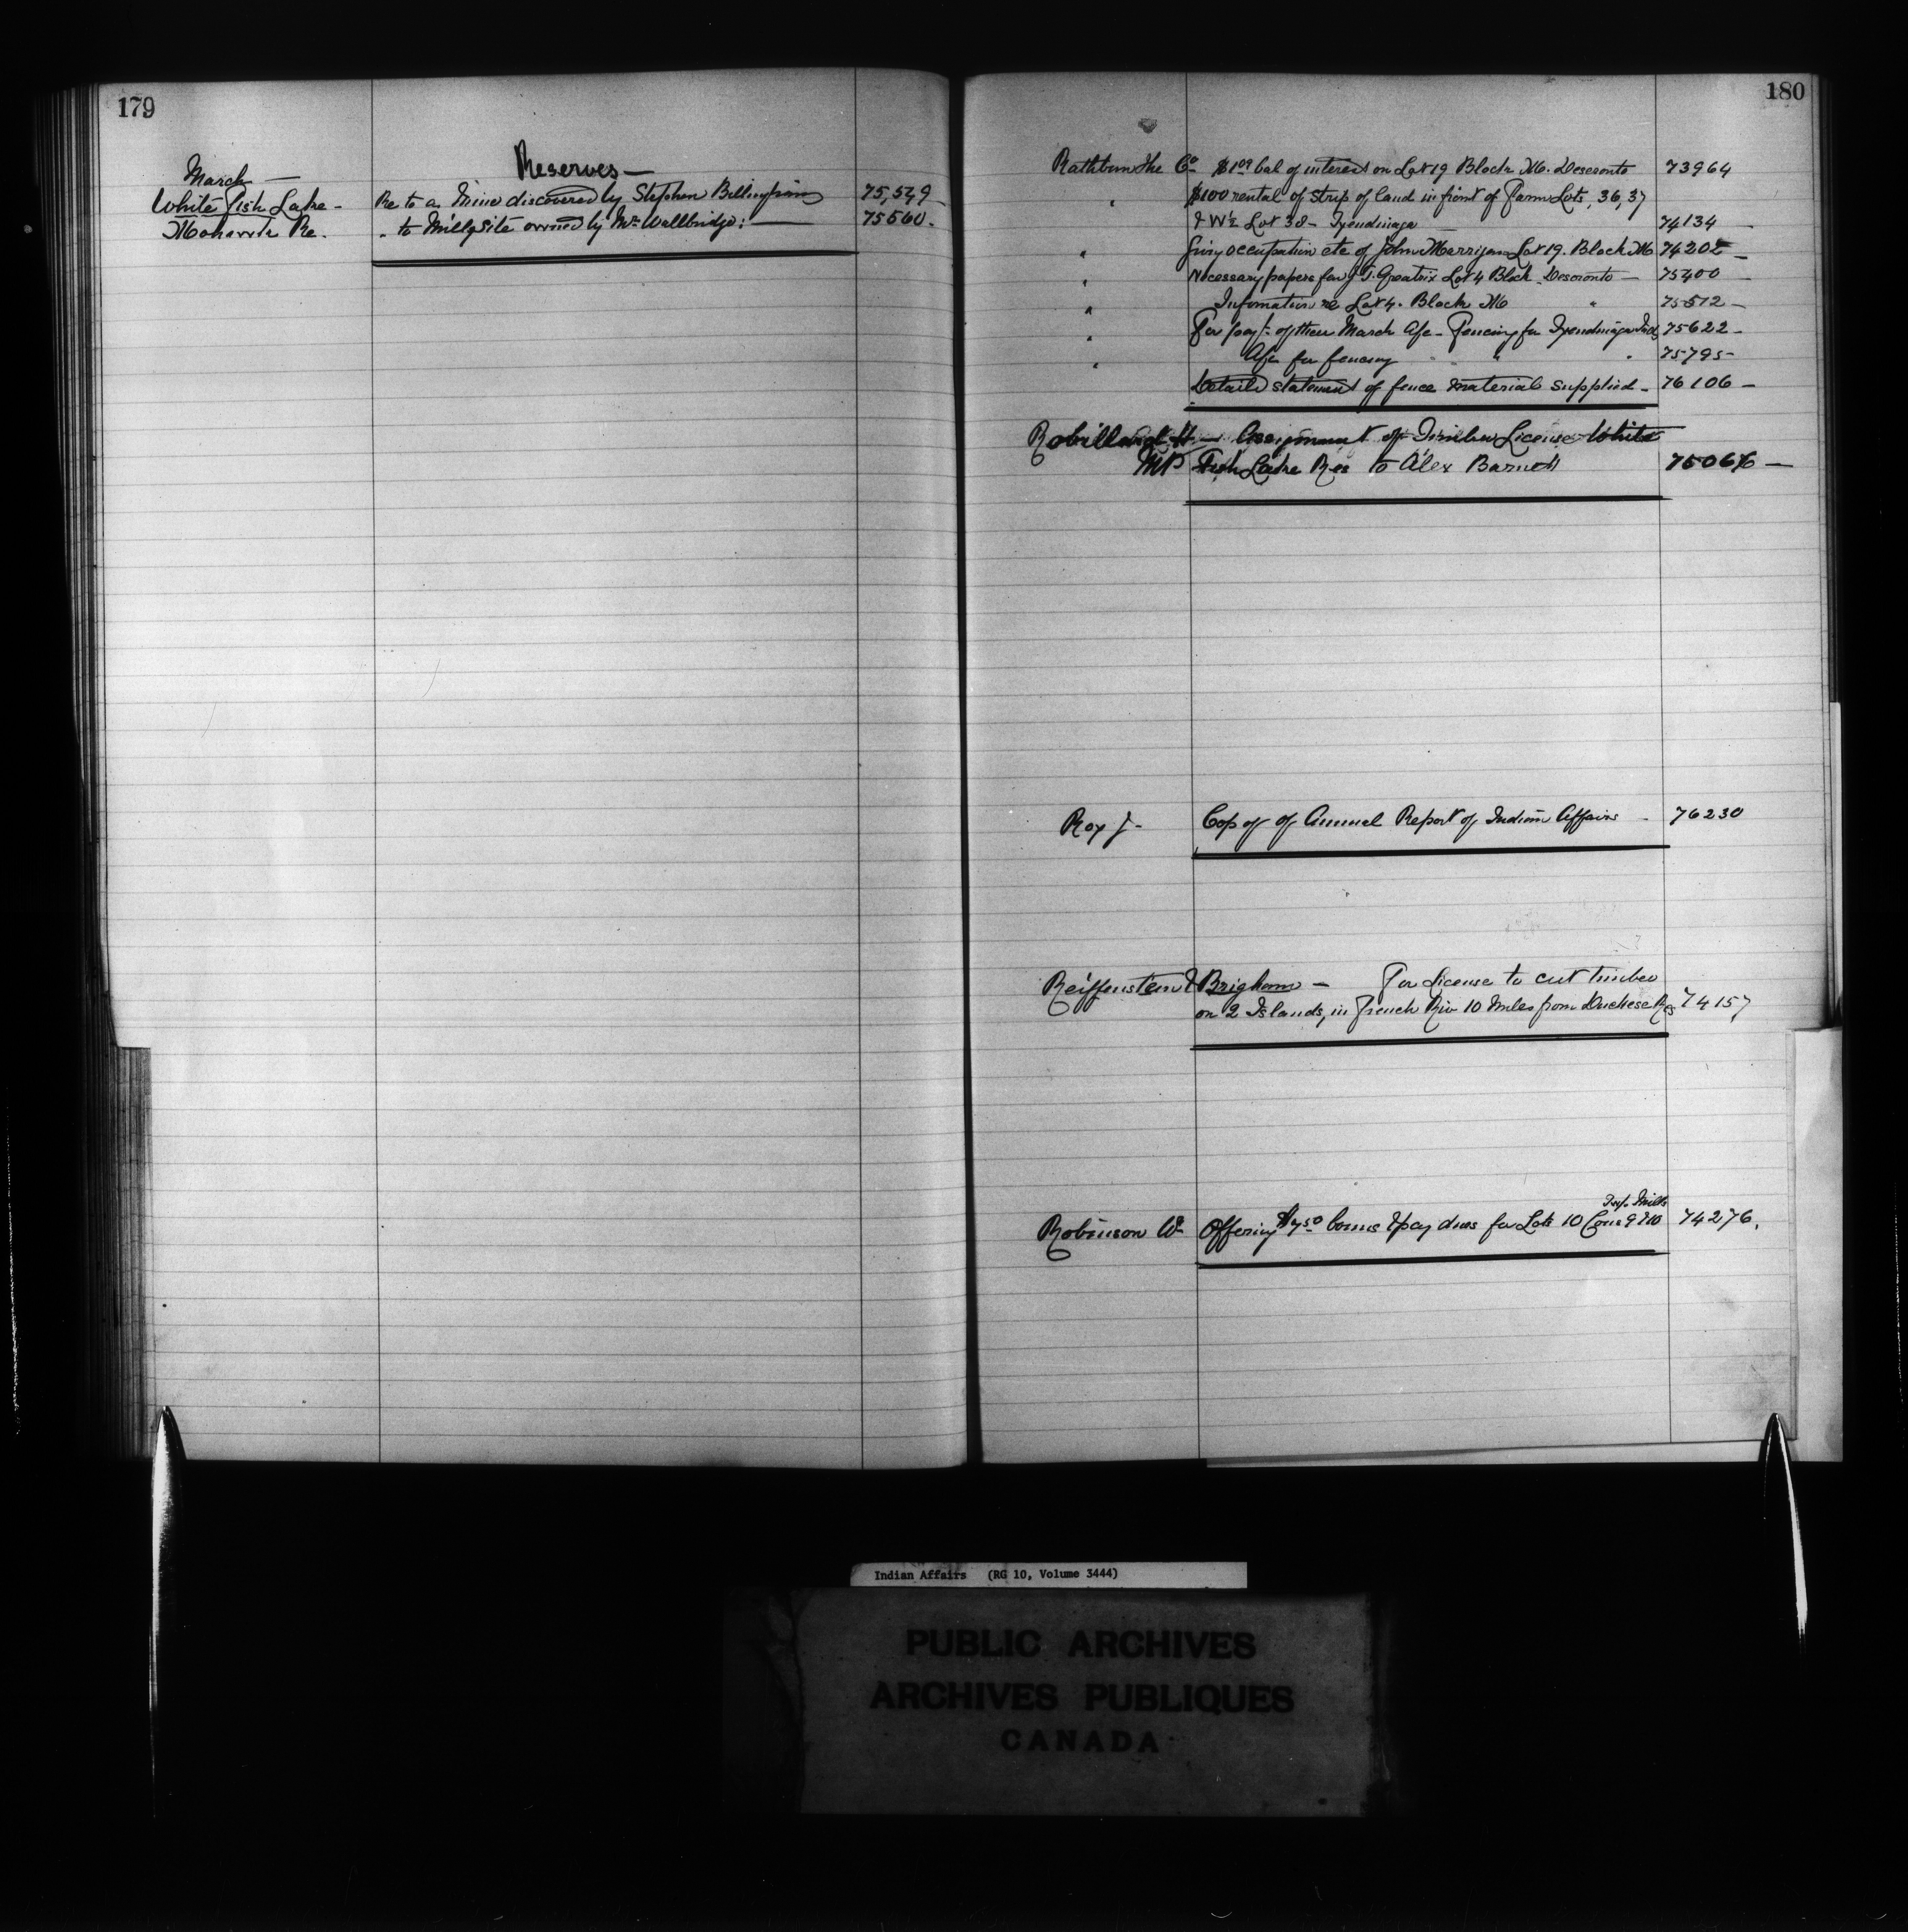 179
Reserves —
March —
White fish Lake - Re to a Mine discovered by Stephen Billingsion 75,549 -
Mohawk Re. " to Mill Site owned by Mr Wallbridge. — 75560.
180
Rathbun The Co - $1.09 bal of interest on Lot 19 Block M. Deseronto 73964
" $100 rental of strip of land in front of Farm Lots, 36, 37
& W½ Lot 38 - Tyendinaga 74134 -
" Giving occupation etc of John Marrigan Lot 19. Block M 74202 -
" Necessary papers for J. T. Greatrix Lot 4 Block Deseronto - 75400 -
" Information re Lot 4. Block M " 75512 -
" For payt of their March a/c - Fencing for Tyendinaga Inds 75622 -
" A/c for fencing " " " 75795 -
Detailed statement of fence material supplied - 76106 -
Robillard H — Assignment of Timber License White
MP Fish Lake Res to Alex Barnett 75066 —
Roy J - Copy of Annual Report of Indian Affairs - 76230
Reiffenstein & Brigham - For License to cut timber
on 2 Islands, in French Riv 10 Miles from Duchese Res 74157
Twp. Mills
Robinson Wm Offering $750 bonus & pay dues for Lots 10 Cons 9 & 10 74276.
Indian Affairs (RG 10, Volume 3444)
PUBLIC ARCHIVES
ARCHIVES PUBLIQUES
CANADA